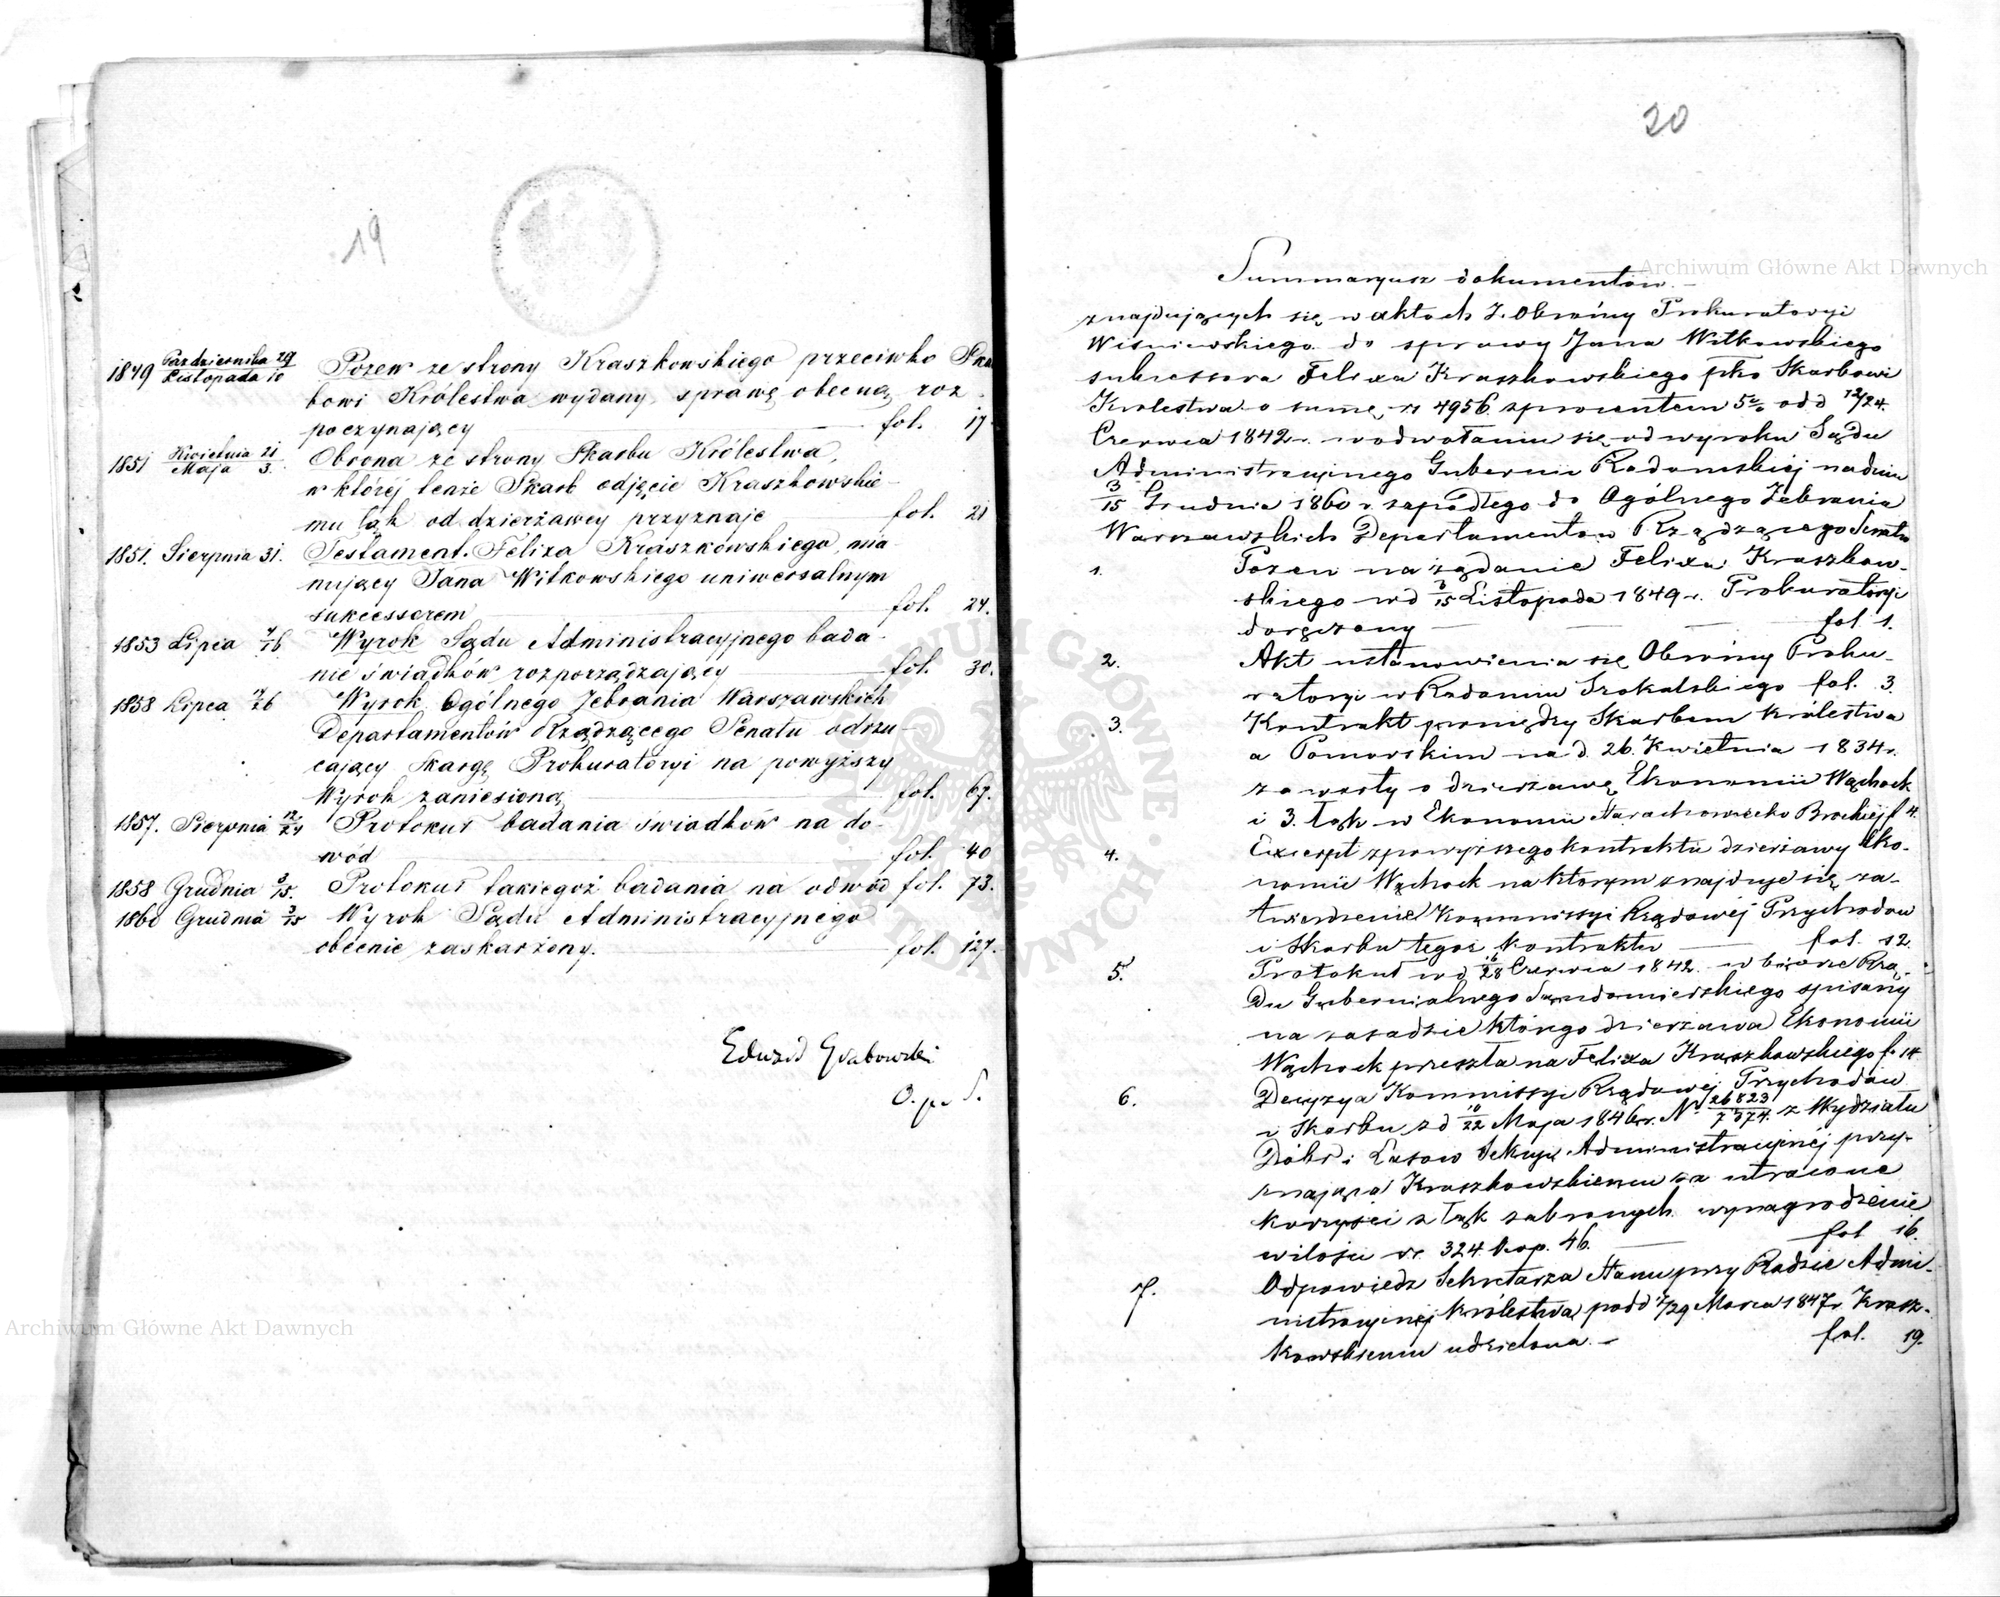 19
1849 Października 29/Listopada 10 Pozew ze strony Kraszkowskiego przeciwko Skar
bowi Królestwa wydany, sprawę obecną roz-
poczynający fol. 17
1851 Kwietnia 21/Maja 3. Obrona ze strony Skarbu Królestwa,
w której tenże Skarb odjęcie Kraszkowskie-
mu łąk od dzierżawcy przyznaje fol. 21
1851. Sierpnia 31. Testament Felixa Kraszkowskiego, mia-
nujący Jana Witkowskiego uniwersalnym
sukcessorem fol. 24.
1853 Lipca 4/16 Wyrok Sądu Administracyjnego bada-
nie świadków rozporządzający fol. 30.
1858 Lipca 14/26 Wyrok Ogólnego Zebrania Warszawskich
Departamentów Rządzącego Senatu odrzu-
cający Skargę Prokuratoryi na powyższy
Wyrok zaniesioną fol. 67.
1857. Sierpnia 12/24 Protokuł badania świadków na do-
wód fol. 40
1858 Grudnia 3/15. Protokuł takiegoż badania na odwód fol. 73.
1860 Grudnia 3/15 Wyrok Sądu Administracyjnego
obecnie zaskarżony. fol. 127.
Edward Grabowski
O. p. S.
20
Summaryusz dokumentów
znajdujących się w aktach J. Obrońcy Prokuratoryi
Wiśniewskiego do sprawy Jana Witkowskiego
sukcessora Felixa Kraszkowskiego pko Skarbowi
Królestwa o summę rs 4956 z procentem 5% od d 12/24.
Czerwca 1842 r. w odwołaniu się od wyroku Sądu
Administracyjnego Gubernii Radomskiej na dniu
3/15 Grudnia 1860 r. zapadłego do Ogólnego Zebrania
Warszawskich Departamentów Rządzącego Senatu
1. Pozew na żądanie Felixa Kraszkow-
skiego w d 3/15 Listopada 1849 r. Prokuratoryi
doręczony fol. 1.
2. Akt ustanowienia się Obrońcy Proku-
ratoryi w Radomiu Szokalskiego fol. 3.
3. Kontrakt pomiędzy Skarbem Królestwa
a Pomorskim na d. 26. Kwietnia 1834 r.
zawarty o dzierżawę Ekonomii Wąchock
i 3. łąk w Ekonomii Starachowicko Brodzkiej f. 4.
4. Excerpt z powyższego kontraktu dzierżawy Eko-
nomii Wąchock na którym znajduje się za-
twierdzenie Kommissyi Rządowej Przychodów
i Skarbu tegoż kontraktu fol. 12.
5. Protokuł w d 16/28 Czerwca 1842. w biórze Rzą-
du Gubernialnego Sandomierskiego spisany
na zasadzie którego dzierżawa Ekonomii
Wąchock przeszła na Felixa Kraszkowskiego f. 14
6. Decyzya Kommissyi Rządowej Przychodów
i Skarbu z d 10/22 Maja 1846 r. N 26823/7374. z Wydziału
Dóbr i Lasów Sekcyi Administracyjnej przy-
znająca Kraszkowskiemu za utracone
korzyści z łąk zabranych wynagrodzenie
w ilości rs. 324. kop. 46. fol 16.
7. Odpowiedz Sekretarza Stanu przy Radzie Admi-
nistracyjnej Królestwa pod d 17/29 Marca 1847 r. Krasz-
kowskiemu udzielona. fol. 19.
Archiwum Główne Akt Dawnych
Archiwum Główne Akt Dawnych
ARCHIWUM GŁÓWNE AKT DAWNYCH